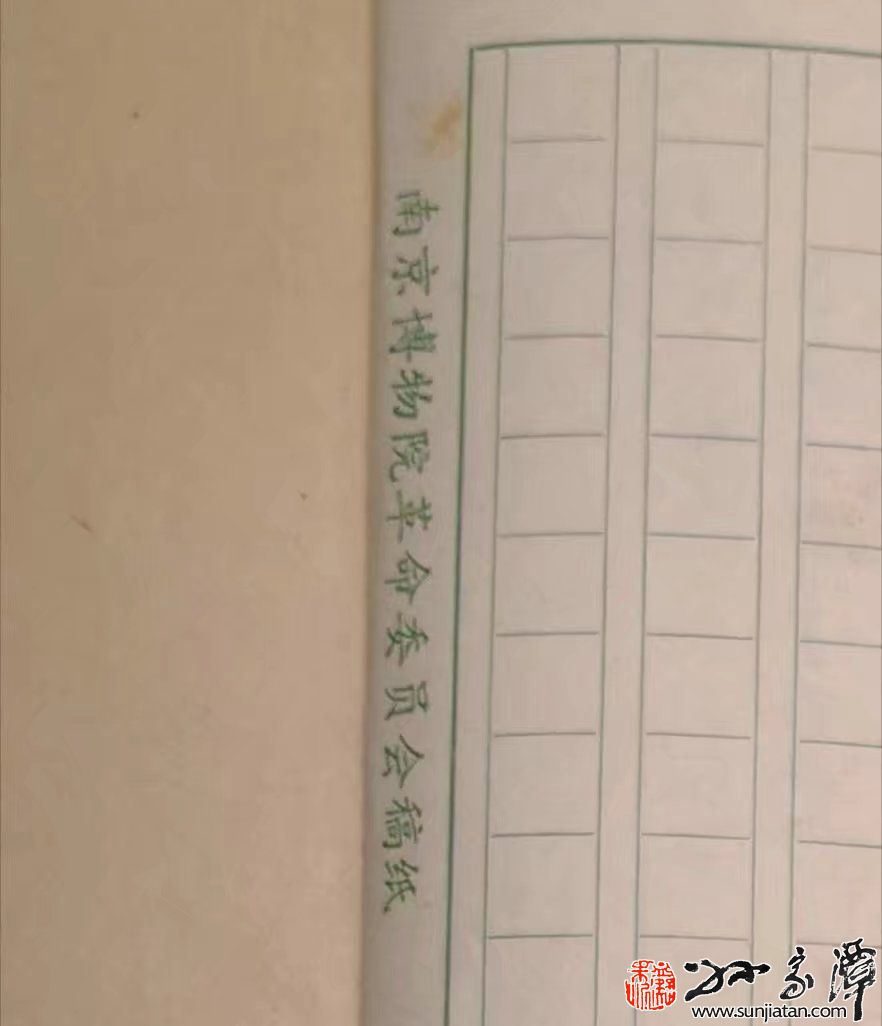 南京博物院革命委员会稿纸
孙家潭
www.sunjiatan.com